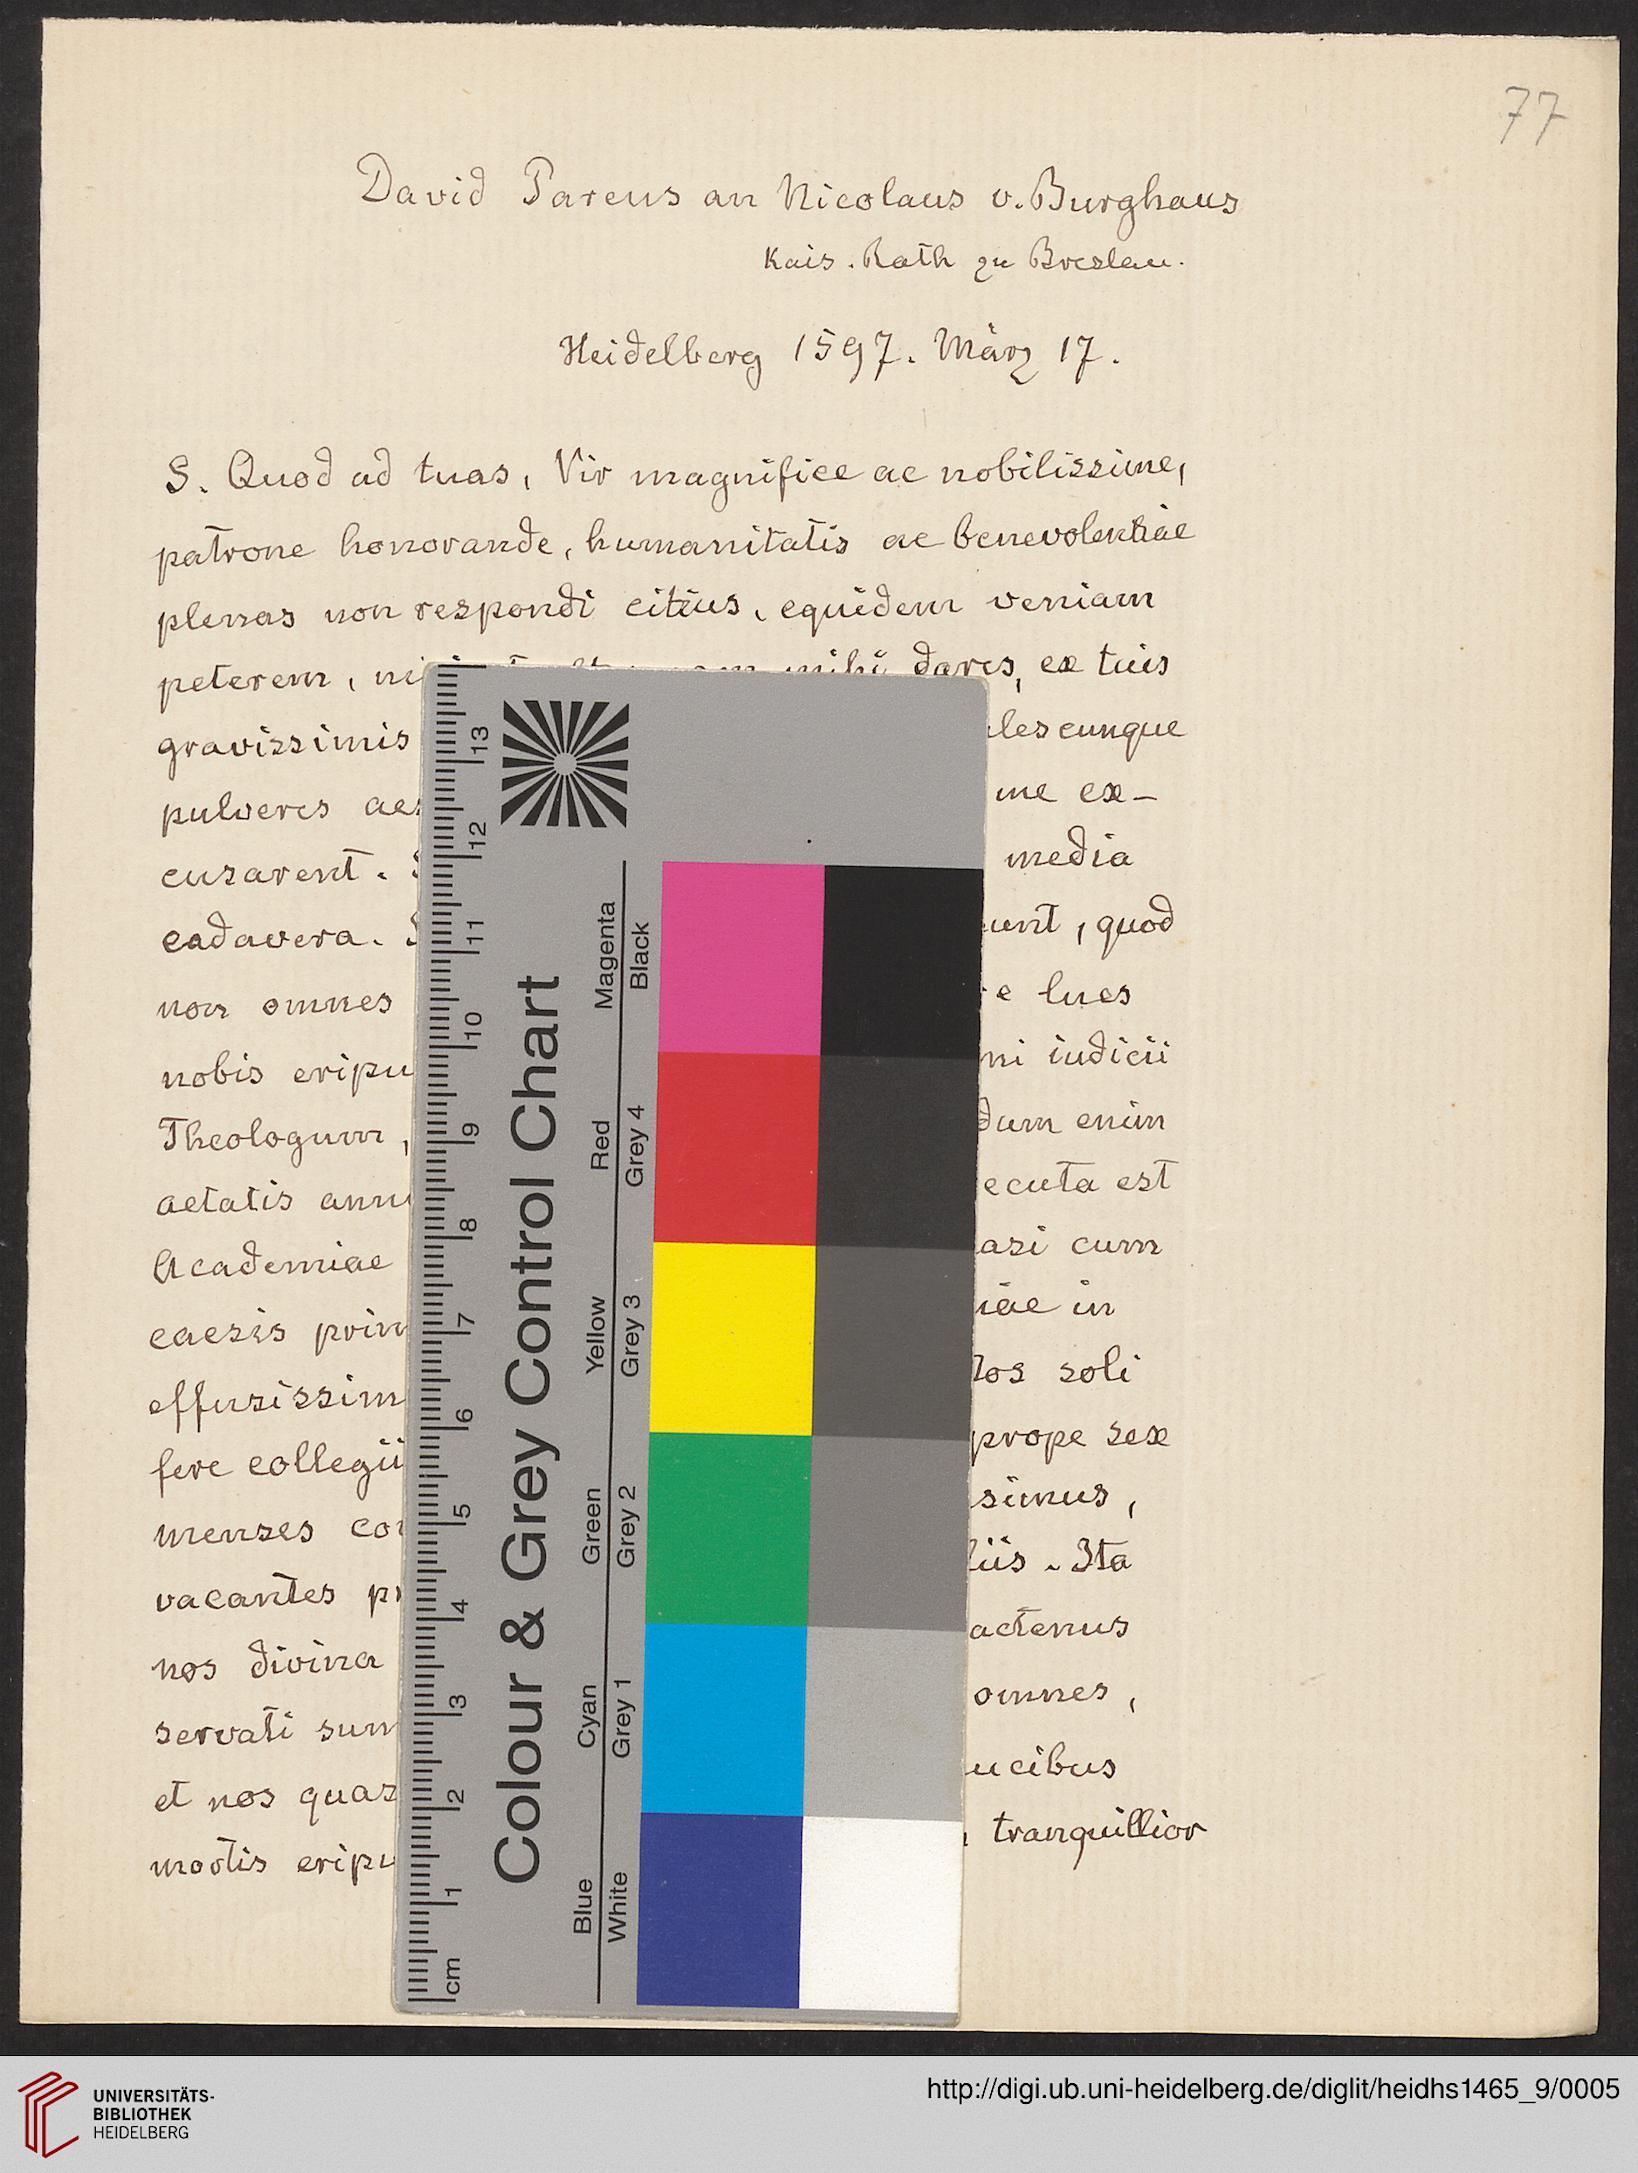 77
David Pareus an Nicolaus v. Burghaus
Kais. Rath zu Breslau.
Heidelberg 1597. März 17.
S. Quod ad tuas, Vir magnifice ac nobilissime,
patrone honorande, humanitatis ac benevolentiae
plenas non respondi citius, equidem veniam
peterem, mihi dares, ex tuis
gravissimis lescunque
pulveres me ex-
cusarent. media
cadavera. unt, quod
non omnes e lues
nobis eripu ni iudicii
Theologum, dum enim
aetatis ecuta est
Academiae asi cum
caesis iae in
effusissim los soli
fere collegii prope sex
menses simus,
vacantes liis. Ita
nos divina actenus
servati sum omnes,
et nos quas ucibus
mortis eripu tranquillior
Colour & Grey Control Chart
Magenta
Black
Red
Grey 4
Yellow
Grey 3
Green
Grey 2
Cyan
Grey 1
Blue
White
13
12
11
10
9
8
7
6
5
4
3
2
1
cm
UNIVERSITÄTS-
BIBLIOTHEK
HEIDELBERG
http://digi.ub.uni-heidelberg.de/diglit/heidhs1465_9/0005